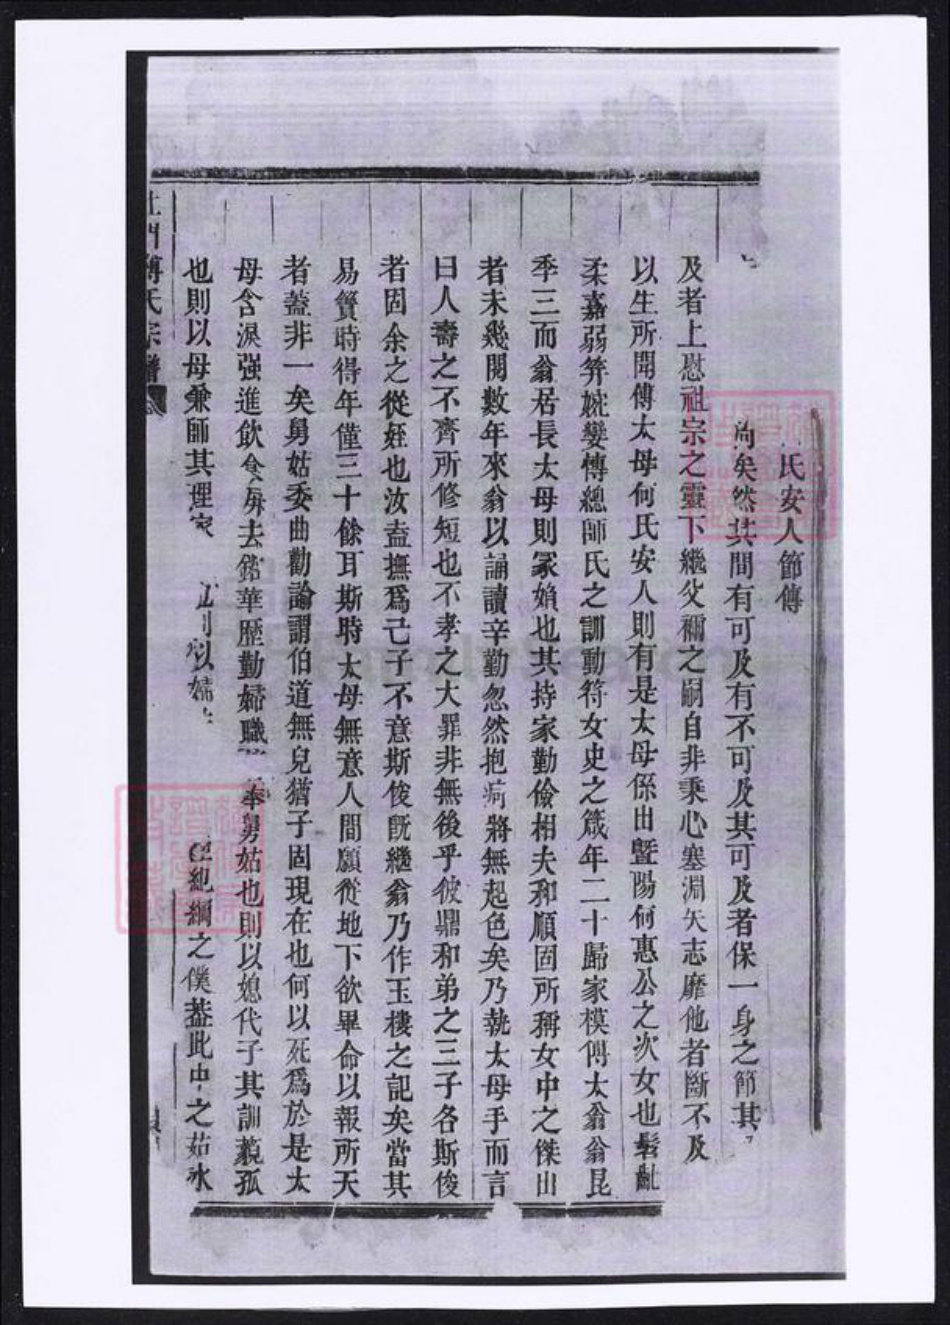 氏安人節傳
矣然其間有可及有不可及其可及者保一身之節其
及者上慰祖宗之靈下繼父禰之嗣自非秉心塞淵矢志靡他者斷不及
以生所聞傅太母何氏安人則有是太母係出暨陽何惠公之次女也髫齔
柔嘉弱笄婉孌傳總師氏之訓動符女史之箴年二十歸家模傅太翁翁昆
季三而翁居長太母則冢媍也其持家勤儉相夫和順固所稱女中之傑出
者未幾閱數年來翁以誦讀辛勤忽然抱病將無起色矣乃執太母手而言
曰人壽之不齊所修短也不孝之大罪非無後乎彼鼎和弟之三子各斯俊
者固余之從姪也汝盍撫爲己子不意斯俊既繼翁乃作玉樓之記矣當其
易簀時得年僅三十餘耳斯時太母無意人間願從地下欲畢命以報所天
者蓋非一矣舅姑委曲勸諭謂伯道無兒猶子固現在也何以死爲於是太
母含淚强進飲食屏去鉛華歷勤婦職奉舅姑也則以媳代子其訓藐孤
也則以母兼師其理家則以紀綱之僕蓋此中之茹冰
傅氏宗譜